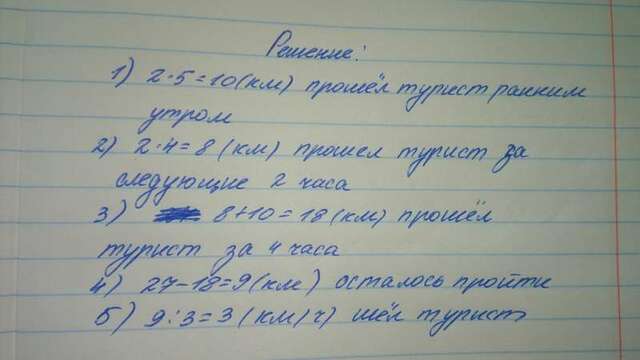 Решение:
1) 2·5=10(км) прошёл турист ранним
утром
2) 2·4=8 (км) прошел турист за
следующие 2 часа
3) 8+10=18(км) прошёл
турист за 4 часа
4) 27-18=9(км) осталось пройти
5) 9:3=3 (км/ч) шёл турист